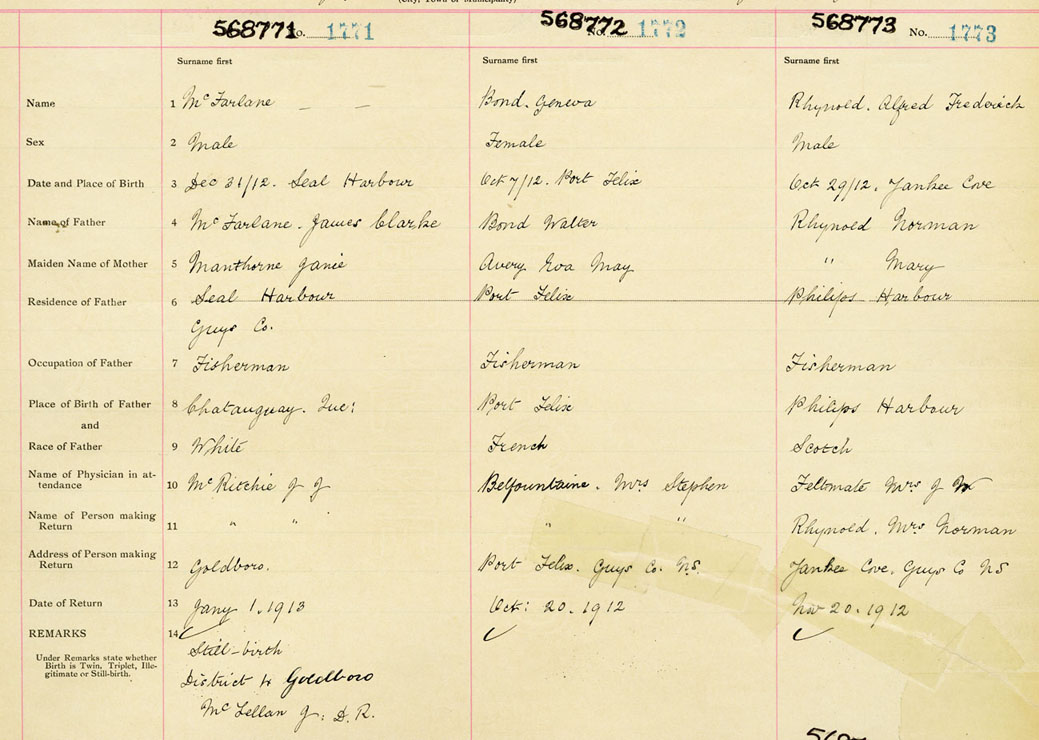 (City, Town or Municipality)
568771 No. 1771 568772 No. 1772 568773 No. 1773
Surname first Surname first Surname first
Name 1 McFarlane — — Bond. Geneva Rhynold. Alfred Frederick
Sex 2 Male Female Male
Date and Place of Birth 3 Dec 31/12. Seal Harbour Oct 7/12. Port Felix Oct 29/12. Yankee Cove
Name of Father 4 McFarlane. James Clarke Bond Walter Rhynold Norman
Maiden Name of Mother 5 Manthorne Janie Avery Eva May " Mary
Residence of Father 6 Seal Harbour Port Felix Philips Harbour
Guys Co.
Occupation of Father 7 Fisherman Fisherman Fisherman
Place of Birth of Father 8 Chatauguay. Que: Port Felix Philips Harbour
and
Race of Father 9 White French Scotch
Name of Physician in at-
tendance 10 McRitchie J J Belfountaine. Mrs Stephen Feltmate Mrs J W
Name of Person making
Return 11 " " " " Rhynold. Mrs Norman
Address of Person making
Return 12 Goldboro. Port Felix. Guys Co. N.S. Yankee Cove. Guys Co NS
Date of Return 13 Jany 1. 1913 Oct: 20. 1912 Nov 20. 1912
REMARKS 14
Still-birth
Under Remarks state whether
Birth is Twin, Triplet, Ille-
gitimate or Still-birth.
District 4 Goldboro
McLellan J: D.R.